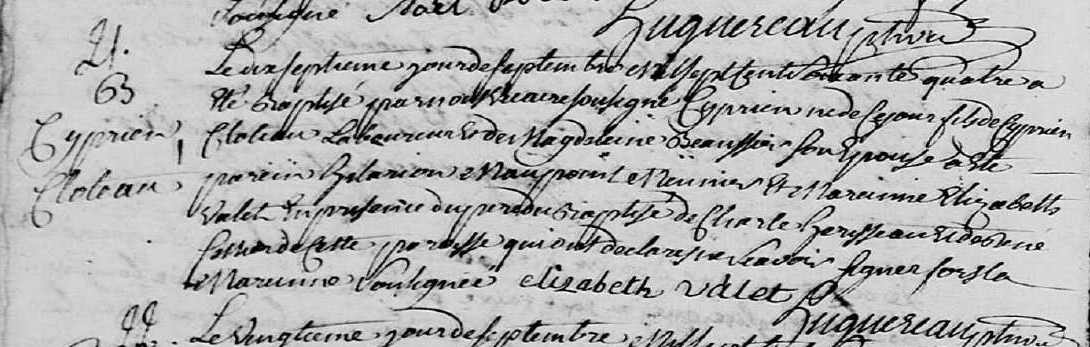 sousigné Noël
Huguereau
21.
63
Cyprien
Cloleau
Le dixseptieme jour de septembre mil sept cent soixante quatre a
Eté Baptisé par nous vicaire sousigné Cyprien né de ce jour fils de Cyprien
Cloleau Laboureur et de Magdeleine Beaussier son Epouse a Eté
parein hilarion Maupoint Meünier Et Mareinne Elizabeth
Valet En presence du pere du Baptisé de Charle herisseau et de rené
de cette paroisse qui ont declaré ne scavoir signer fors la
Mareinne sousignée elisabeth valet
Huguereau
Le vingtieme jour de septembre Mil sept cent